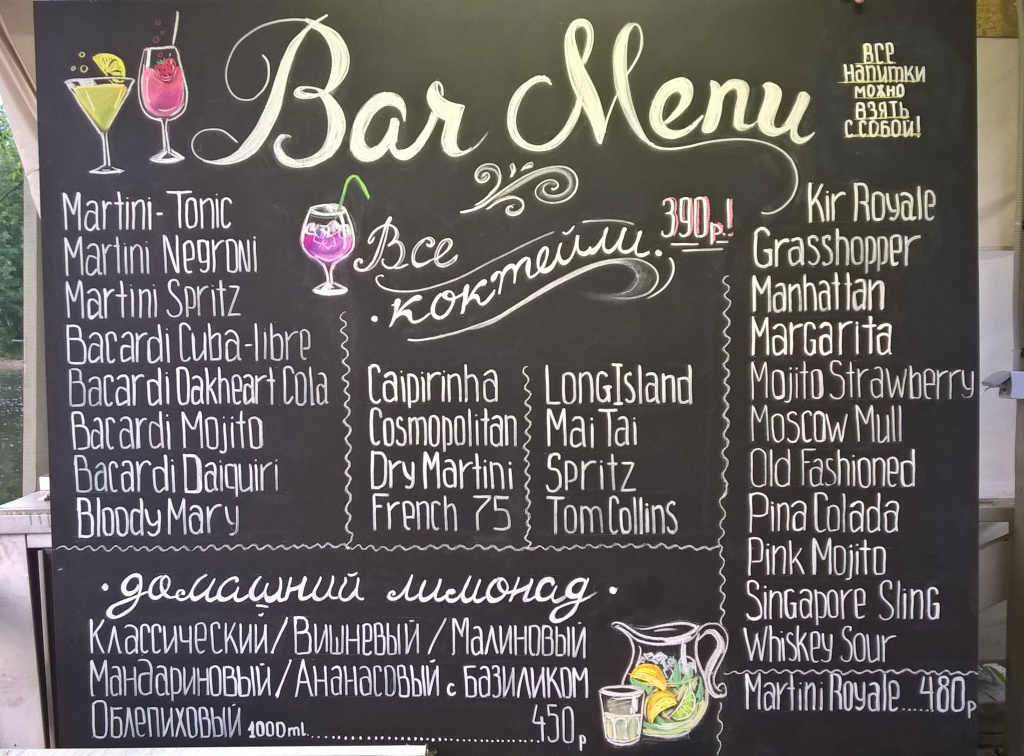 Bar Menu
ВСЕ
НАПИТКИ
МОЖНО
ВЗЯТЬ
С СОБОЙ!
Martini-Tonic
Martini Negroni
Martini Spritz
Bacardi Cuba-libre
Bacardi Oakheart Cola
Bacardi Mojito
Bacardi Daiquiri
Bloody Mary
Все
коктейли.
390р.!
Caipirinha
Cosmopolitan
Dry Martini
French 75
Long Island
Mai Tai
Spritz
Tom Collins
Kir Royale
Grasshopper
Manhattan
Margarita
Mojito Strawberry
Moscow Mull
Old Fashioned
Pina Colada
Pink Mojito
Singapore Sling
Whiskey Sour
Martini Royale.....480р
·домашний лимонад·
Классический/Вишневый/Малиновый
Мандариновый/Ананасовый с базиликом
Облепиховый 1000ml..........................450р